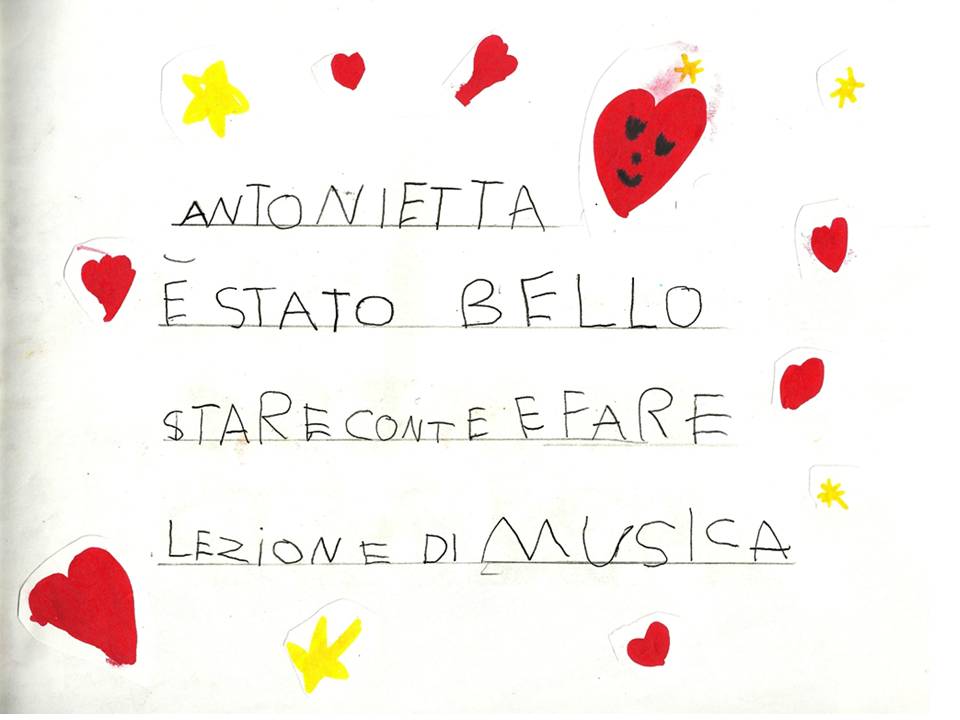 ANTONIETTA
È STATO BELLO
STARE CON TE E FARE
LEZIONE DI MUSICA